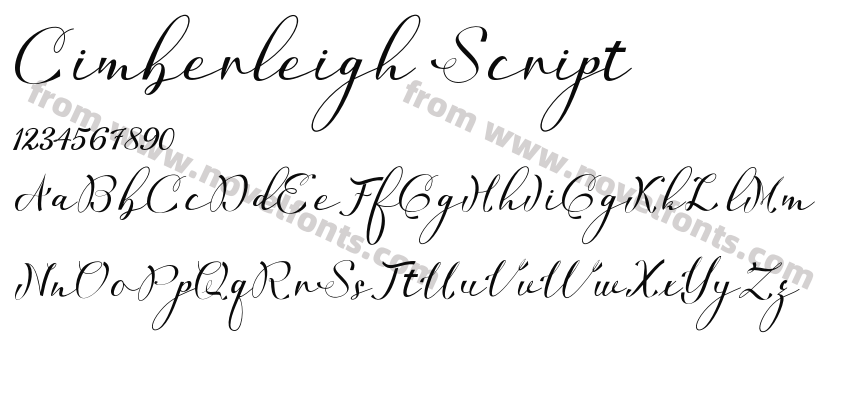 Cimberleigh Script
1234567890
AaBbCcDdEeFfGgHhIiGgKkLlMm
NnOoPpQqRrSsTtUuVvWwXxYyZz
from www.novelfonts.com
from www.novelfonts.com